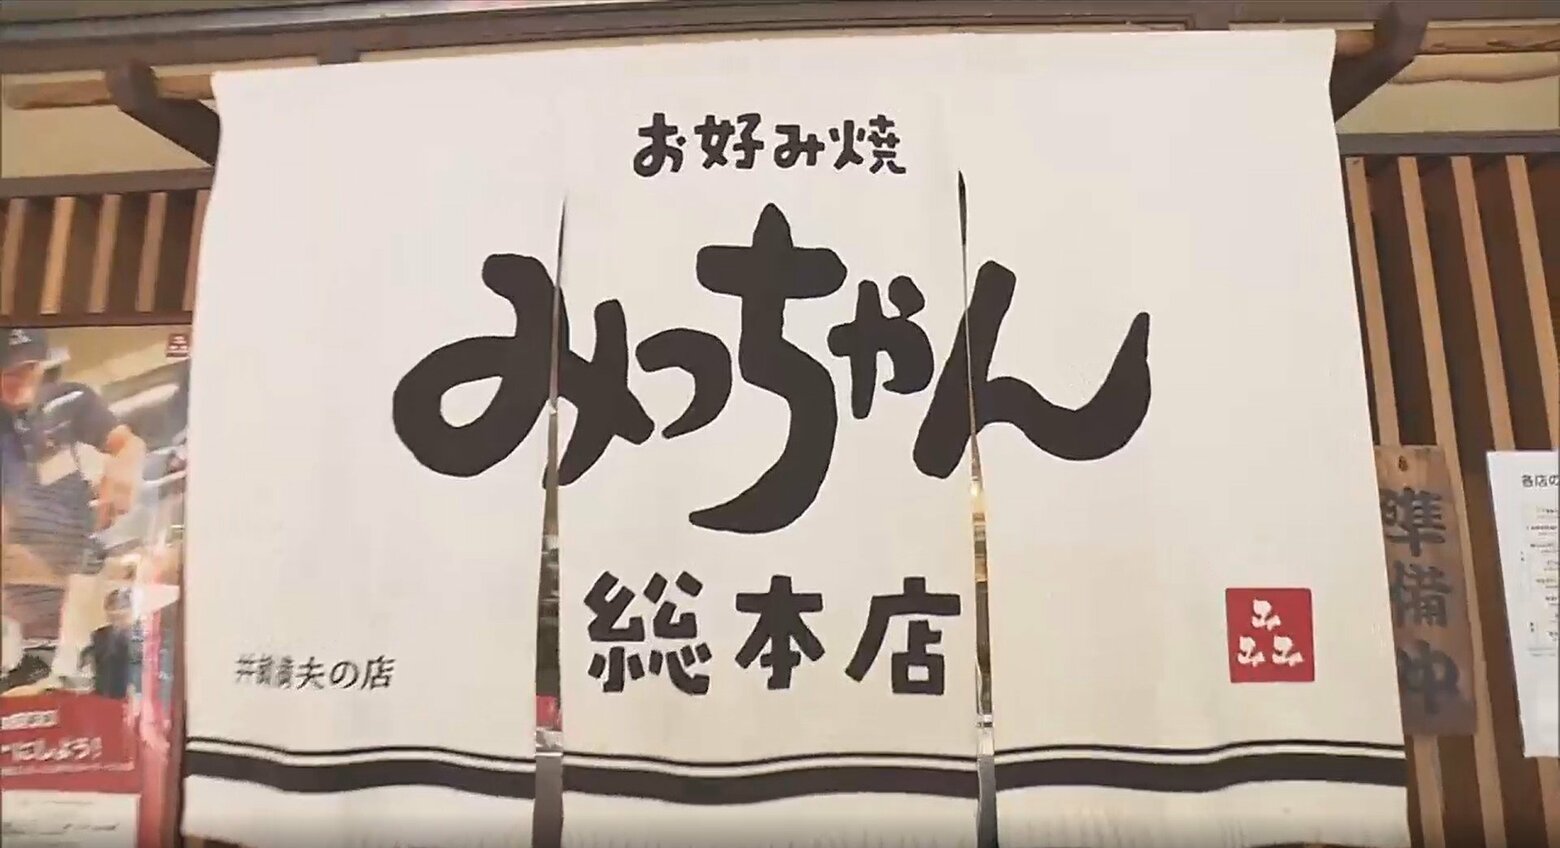 お好み焼
みっちゃん
総本店
夫の店
準備中
各店の
にしよう!